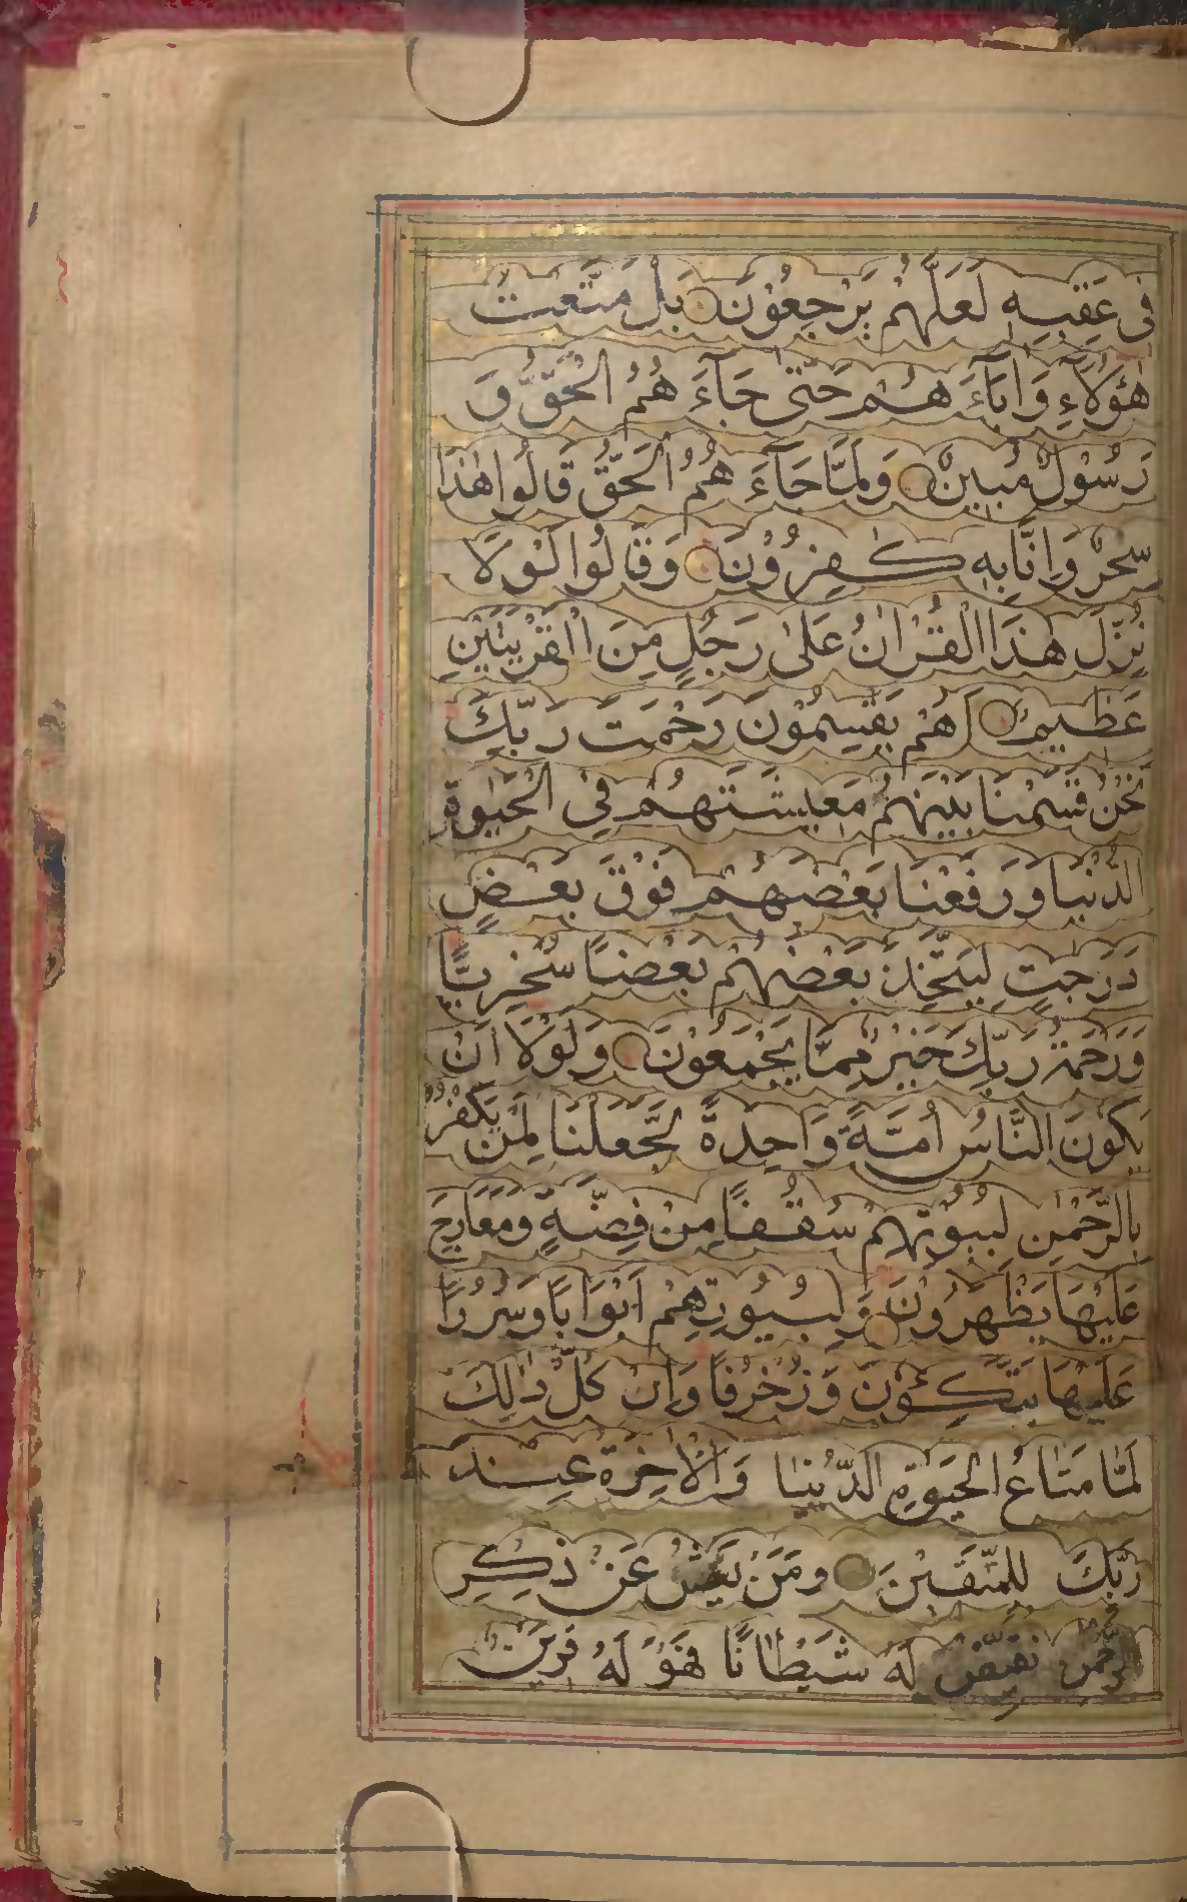 فِى عَقِبِهٖ لَعَلَّهُمْ يَرْجِعُوْنَ بَلْ مَتَّعْتُ
هٰؤُلَآءِ وَاٰبَآءَ هُمْ حَتّٰى جَآءَ هُمُ الْحَقُّ وَ
رَسُوْلٌ مُبِيْنٌ وَلَمَّا جَآءَ هُمُ الْحَقُّ قَالُوا هٰذَا
سِحْرٌ وَاِنَّا بِهٖ كٰفِرُوْنَ وَقَالُوا لَوْلَا
نُزِّلَ هٰذَا الْقُرْاٰنُ عَلٰى رَجُلٍ مِنَ الْقَرْيَتَيْنِ
عَظِيْمٍ اَهُمْ يَقْسِمُوْنَ رَحْمَتَ رَبِّكَ
نَحْنُ قَسَمْنَا بَيْنَهُمْ مَعِيْشَتَهُمْ فِى الْحَيٰوةِ
الدُّنْيَا وَرَفَعْنَا بَعْضَهُمْ فَوْقَ بَعْضٍ
دَرَجٰتٍ لِيَتَّخِذَ بَعْضُهُمْ بَعْضًا سُخْرِيًّا
وَرَحْمَةُ رَبِّكَ خَيْرٌ مِمَّا يَجْمَعُوْنَ وَلَوْلَا اَنْ
يَكُوْنَ النَّاسُ اُمَّةً وَاحِدَةً لَجَعَلْنَا لِمَنْ يَكْفُرُ
بِالرَّحْمٰنِ لِبُيُوْتِهِمْ سُقُفًا مِنْ فِضَّةٍ وَمَعَارِجَ
عَلَيْهَا يَظْهَرُوْنَ وَلِبُيُوْتِهِمْ اَبْوَابًا وَسُرُرًا
عَلَيْهَا يَتَّكِئُوْنَ وَزُخْرُفًا وَاِنْ كُلُّ ذٰلِكَ
لَمَّا مَتَاعُ الْحَيٰوةِ الدُّنْيَا وَالْاٰخِرَةُ عِنْدَ
رَبِّكَ لِلْمُتَّقِيْنَ وَمَنْ يَعْشُ عَنْ ذِكْرِ
الرَّحْمٰنِ نُقَيِّضْ لَهُ شَيْطَانًا فَهُوَ لَهُ قَرِيْنٌ